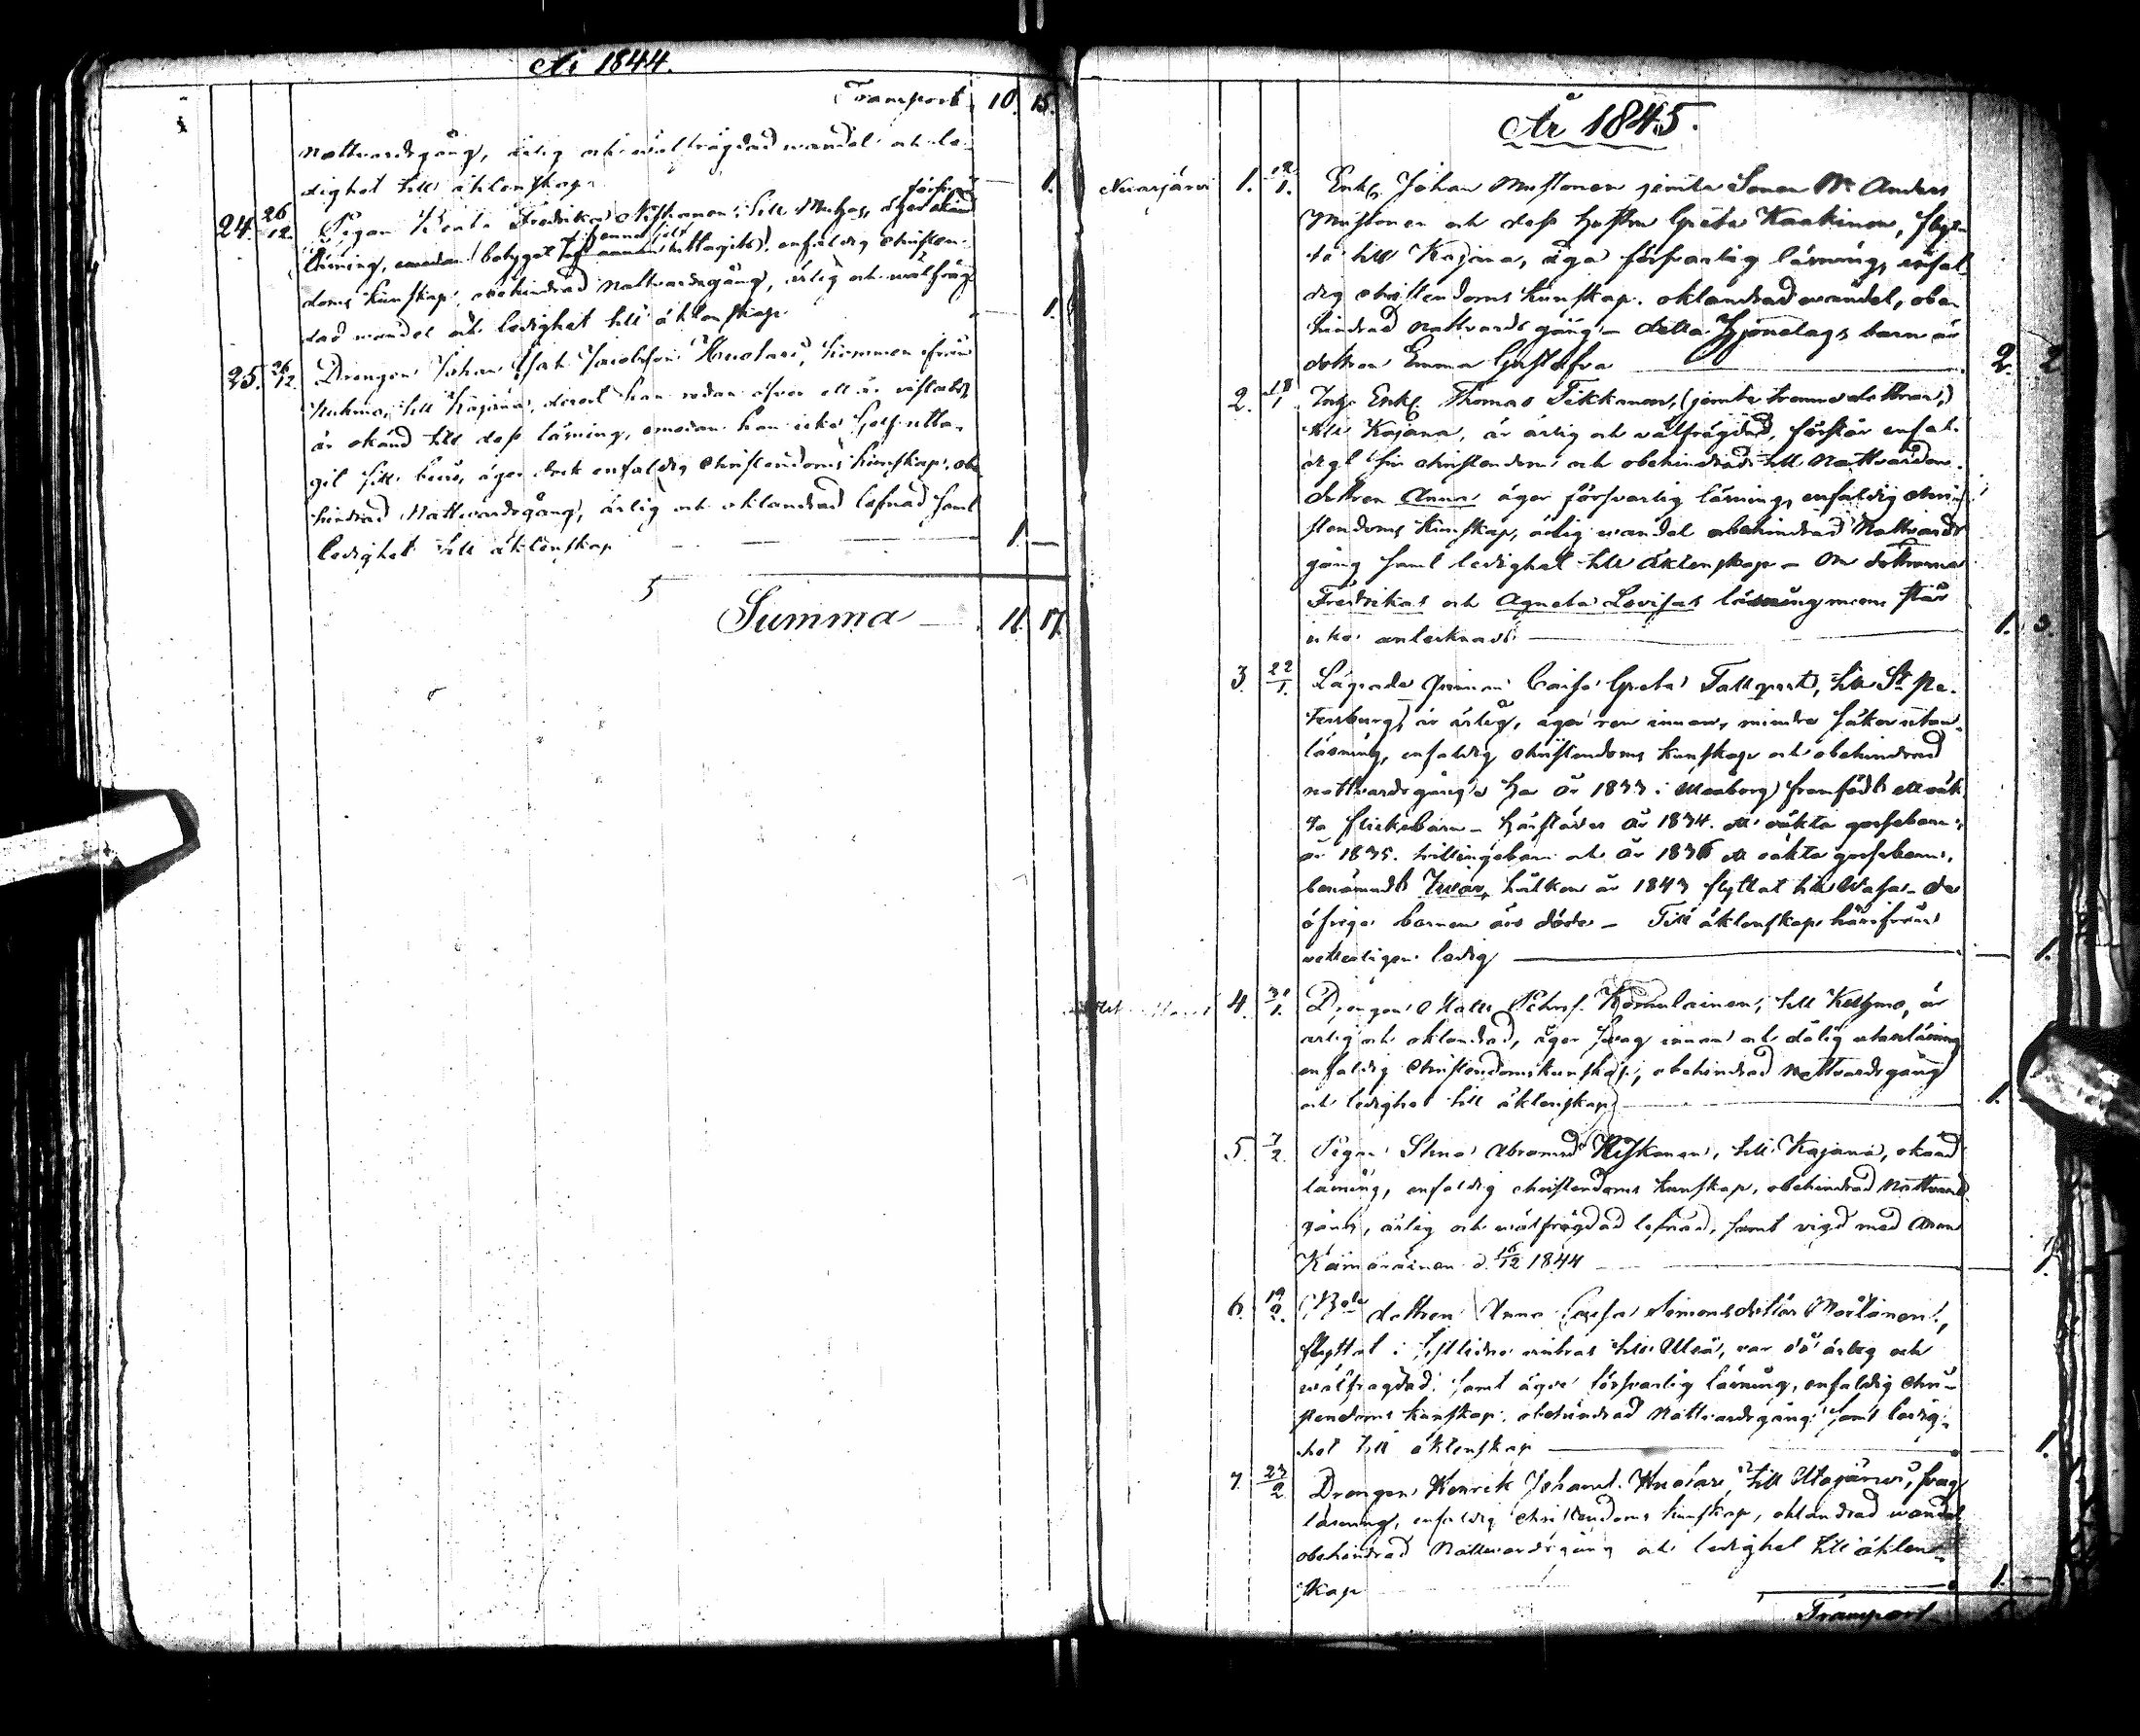 År 1844.
Transport 10. 15.
Nattvardsgång, ärlig och välfrägdad wandel och le-
dighet till äktenskap — 1.
24. 26/12. Pigan Fredrika till
försvarlig
läsning, betyget enfaldig christen-
doms kunskap, obehindrad Nattvardsgång, ärlig och wälfräg-
dad wandel och ledighet till äktenskap — 1.
25. 26/12. Drengen Johan Isak Jacobsson kommen ifrån
Kuhmo, till Kajana, derest han redan öfver ett år vistats,
är okänd till dess läsning, emedan han icke sjelf utta-
git sitt bevis, äger dock enfaldig Christendoms kunskap, obe-
hindrad Nattvardsgång, ärlig och oklandrad lefnad samt
ledighet till äktenskap — 1. —
Summa — 11. 17.
År 1845.
1. 12/1. Enkl. Johan Mustonen jemte Sonen Anders
Mustonen och dess hustru Greta Kaakinen, flyt-
ta till Kajana, äga försvarlig läsning, enfal-
dig christendoms kunskap, oklandrad wandel, obe-
hindrad Nattvards gång — detta Hjonelags barn är
dottren Emma Gustafva — 2. 2.
2. 18/1 Enkl. Thomas Tikkanen, (jemte trenne döttrar,)
till Kajana, är ärlig och välfrägdad, förstår enfal-
digt sin christendom och obehindrad till Nattvarden.
dottren Anna äger försvarlig läsning, enfaldig chri-
stendoms kunskap, ärlig wandel obehindrad Nattvards
gång samt ledighet till äktenskap — Om döttrarna
Fredrikas och Agneta Lovisas läsning står
icke antecknadt — 1. 3.
3. 22/1. Lägrade Caisa Greta Tallqvist, till St. Pe-
tersburg, är ärlig, äger ren innan, mindre säker utan-
läsning, enfaldig christendoms kunskap och obehindrad
nattvardsgång. Har år 1833 i Uleåborg framfödt ett oäk-
ta flickebarn — härstädes år 1834. ett oäkta gossebarn,
år 1835. tvillingebarn och år 1836 ett oäkta gossebarn,
benämndt Ivar, hvilken år 1843 flyttat till Wasa — de
öfriga barnen äro döde — Till äktenskap härifrån
vetterligen ledig — 1.
4. 31/1. Drengen Matts Petersf. Komulainen, till Kuhmo, är
ärlig och oklandrad, äger svag innan och dålig utanläsning
enfaldig Christendomskunskap, obehindrad Nattvardsgång
och ledighet till äktenskap — 1.
5. 7/2. Pigan Stina Abramsd. Kiiskanen, till Kajana, okänd
läsning, enfaldig christendoms kunskap, obehindrad Nattvard
gång, ärlig och wälfrägdad lefnad, samt vigd med
Kämäräinen d. 15/12 1844 — 1.
6. 19/2. dottren Anna Caisa Simonsdotter Moilanen,
flyttat i sistledne vintras till Uleå, var då ärlig och
wälfrägdad, samt ägde försvarlig läsning, enfaldig chri-
stendoms kunskap, obehindrad Nattvardsgång samt ledig-
het till äktenskap — 1.
7. 23/2. Drengen Henrik Johansf. till Utajärvi, svag
läsning, enfaldig christendoms kunskap, oklandrad wandel
obehindrad Nattvardsgång och ledighet till äkten-
skap — 1. —
Transport